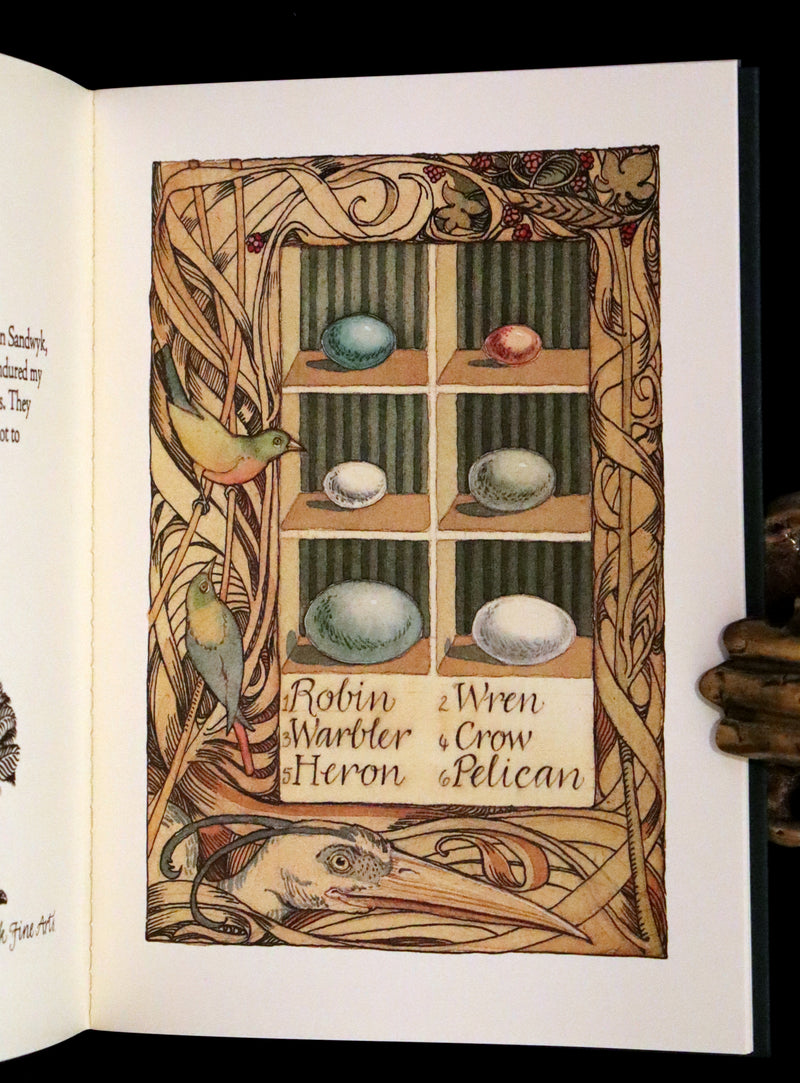 n Sandwyk,
ndured my
s. They
ot to
k Fine Arts
1 Robin 2 Wren
3 Warbler 4 Crow
5 Heron 6 Pelican